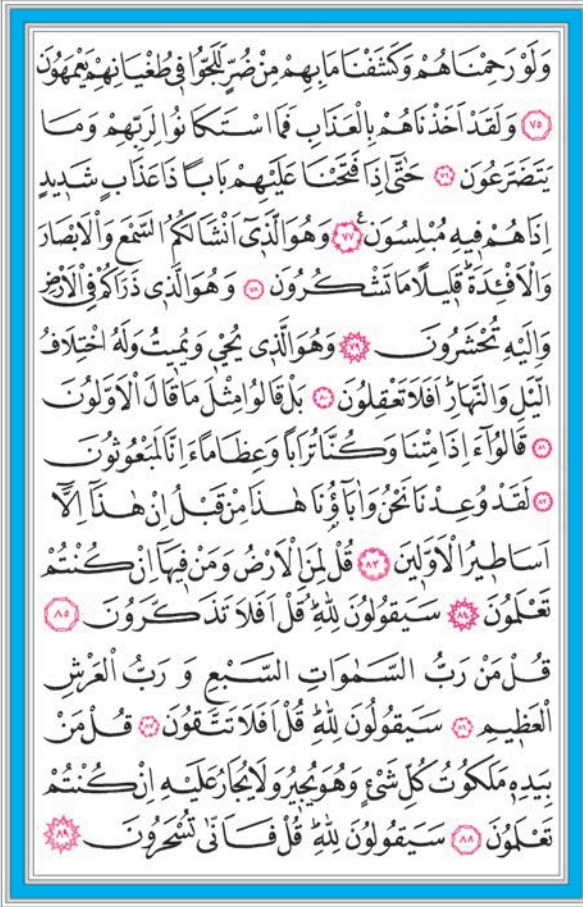 وَلَوْ رَحِمْنَاهُمْ وَكَشَفْنَا مَا بِهِمْ مِنْ ضُرٍّ لَلَجُّوا فِي طُغْيَانِهِمْ يَعْمَهُونَ
﴿٧٥﴾ وَلَقَدْ اَخَذْنَاهُمْ بِالْعَذَابِ فَمَا اسْتَكَانُوا لِرَبِّهِمْ وَمَا
يَتَضَرَّعُونَ ﴿٧٦﴾ حَتّٰٓى اِذَا فَتَحْنَا عَلَيْهِمْ بَابًا ذَا عَذَابٍ شَدِيدٍ
اِذَا هُمْ فِيهِ مُبْلِسُونَ ﴿٧٧﴾ وَهُوَ الَّذِٓي اَنْشَاَ لَكُمُ السَّمْعَ وَالْاَبْصَارَ
وَالْاَفْئِدَةَۜ قَلِيلًا مَا تَشْكُرُونَ ﴿٧٨﴾ وَهُوَ الَّذِي ذَرَاَكُمْ فِي الْاَرْضِ
وَاِلَيْهِ تُحْشَرُونَ ﴿٧٩﴾ وَهُوَ الَّذِي يُحْيِ وَيُمِيتُ وَلَهُ اخْتِلَافُ
الَّيْلِ وَالنَّهَارِۜ اَفَلَا تَعْقِلُونَ ﴿٨٠﴾ بَلْ قَالُوا مِثْلَ مَا قَالَ الْاَوَّلُونَ
﴿٨١﴾ قَالُٓوا ءَاِذَا مِتْنَا وَكُنَّا تُرَابًا وَعِظَامًا ءَاِنَّا لَمَبْعُوثُونَ
﴿٨٢﴾ لَقَدْ وُعِدْنَا نَحْنُ وَاٰبَٓاؤُ۬نَا هٰذَا مِنْ قَبْلُ اِنْ هٰذَٓا اِلَّٓا
اَسَاطِيرُ الْاَوَّلِينَ ﴿٨٣﴾ قُلْ لِمَنِ الْاَرْضُ وَمَنْ فِيهَٓا اِنْ كُنْتُمْ
تَعْلَمُونَ ﴿٨٤﴾ سَيَقُولُونَ لِلّٰهِۜ قُلْ اَفَلَا تَذَكَّرُونَ ﴿٨٥﴾
قُلْ مَنْ رَبُّ السَّمٰوَاتِ السَّبْعِ وَ رَبُّ الْعَرْشِ
الْعَظِيمِ ﴿٨٦﴾ سَيَقُولُونَ لِلّٰهِۜ قُلْ اَفَلَا تَتَّقُونَ ﴿٨٧﴾ قُلْ مَنْ
بِيَدِهِ مَلَكُوتُ كُلِّ شَيْءٍ وَهُوَ يُجِيرُ وَلَا يُجَارُ عَلَيْهِ اِنْ كُنْتُمْ
تَعْلَمُونَ ﴿٨٨﴾ سَيَقُولُونَ لِلّٰهِۜ قُلْ فَاَنّٰى تُسْحَرُونَ ﴿٨٩﴾